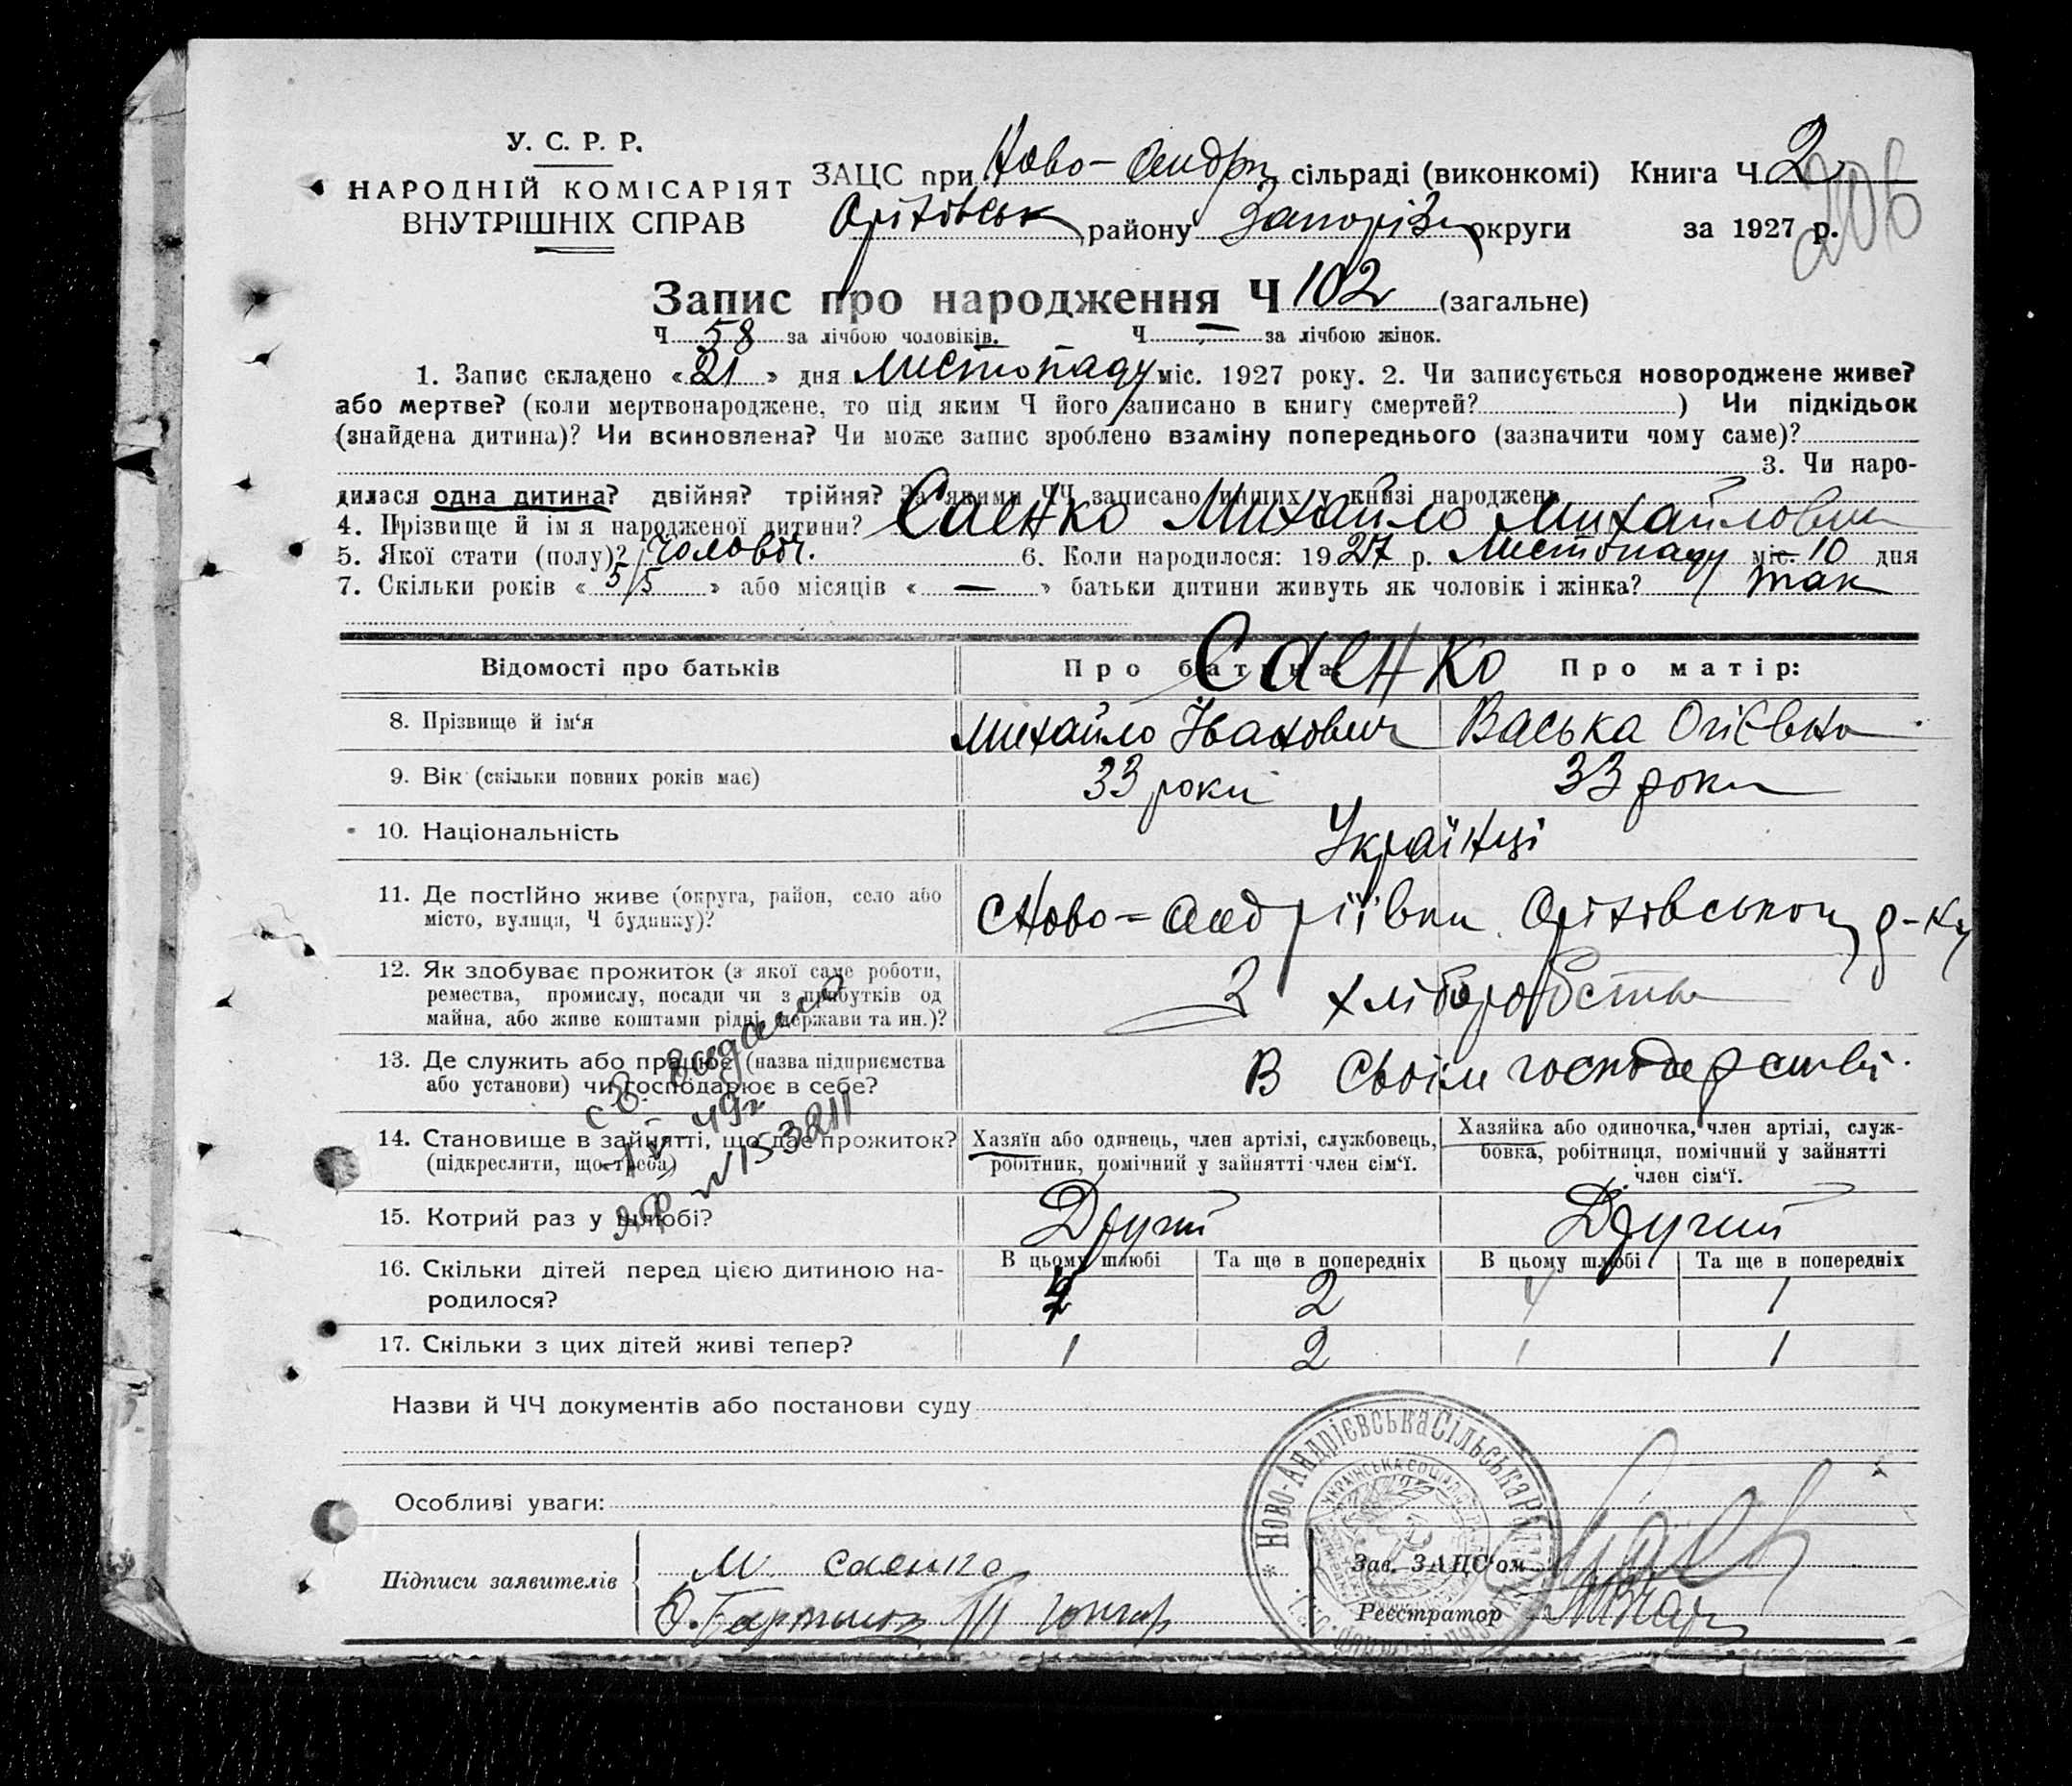 У. С. Р. Р.
НАРОДНІЙ КОМІСАРІЯТ
ВНУТРІШНІХ СПРАВ
ЗАЦС при Ново-Андрі сільраді (виконкомі) Книга Ч. 2
206
Оріхівськ району Запоріз округи за 1927 р.
Запис про народження Ч 102 (загальне)
Ч 58 за лічбою чоловіків. Ч — за лічбою жінок.
1. Запис складено «21» дня Листопаду міс. 1927 року. 2. Чи записується новороджене живе?
або мертве? (коли мертвонароджене, то під яким Ч його записано в книгу смертей? ) Чи підкідьок
(знайдена дитина)? Чи всиновлена? Чи може запис зроблено взаміну попереднього (зазначити чому саме)?
3. Чи наро-
дилася одна дитина? двійня? трійня? За якими ЧЧ записано инших у книзі народжень
4. Прізвище й ім'я народженої дитини? Саенко Михайло Михайлович
5. Якої стати (полу)? Чоловіч. 6. Коли народилося: 1927 р. Листопаду міс. 10 дня
7. Скільки років «5/5» або місяців «—» батьки дитини живуть як чоловік і жінка? так
Відомості про батьків Про батька Про матір:
Саенко
8. Прізвище й ім'я Михайло Іванович Васька
9. Вік (скільки повних років має) 33 роки 33 роки
10. Національність Українці
11. Де постійно живе (округа, район, село або
місто, вулиця, Ч будинку)?
Ново-Андріївки Оріхівського р-ну
12. Як здобуває прожиток (з якої саме роботи,
ремества, промислу, посади чи з прибутків од
майна, або живе коштами рідні, держави та ин.)?
З хліборобства
13. Де служить або працює (назва підприємства
або установи) чи господарює в себе?
В своїм господарстві.
св. видано
49г
№ 153211
14. Становище в зайнятті, що дає прожиток?
(підкреслити, що треба)
Хазяїн або одинець, член артілі, службовець,
робітник, помічний у зайнятті член сім'ї.
Хазяйка або одиночка, член артілі, служ-
бовка, робітниця, помічний у зайнятті
член сім'ї.
15. Котрий раз у шлюбі? Другий Другий
В цьому шлюбі Та ще в попередніх В цьому шлюбі Та ще в попередніх
16. Скільки дітей перед цією дитиною на-
родилося?
2 1
17. Скільки з цих дітей живі тепер? 1 2 1 1
Назви й ЧЧ документів або постанови суду
Особливі уваги:
НОВО-АНДРІЄВСЬКА СІЛЬСЬКА РАДА
Підписи заявителів
М. Саенко
Зав. ЗАЦС'ом
Реєстратор